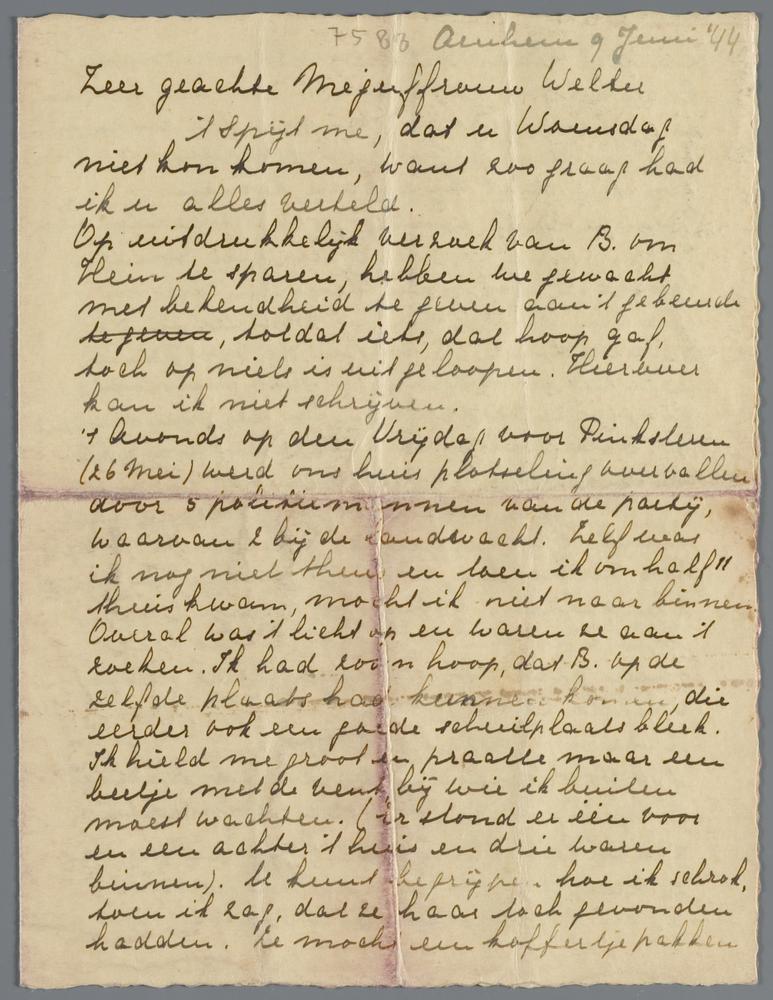 7583 Arnhem 9 Juni '44
Zeer geachte Mejuffrouw Welter
't Spijt me, dat u Woensdag
niet kon komen, want zoo graag had
ik u alles verteld.
Op uitdrukkelijk verzoek van B. om
Hein te sparen, hebben we gewacht
met bekendheid te geven aan 't gebeurde
te geven, totdat iets, dat hoop gaf,
toch op niets is uitgeloopen. Hierover
kan ik niet schrijven.
's Avonds op den Vrijdag voor Pinksteren
(26 Mei) werd ons huis plotseling overvallen
door 5 politiemannen van de partij,
waarvan 2 bij de landwacht. Zelf was
ik nog niet thuis en toen ik om half 11
thuis kwam, mocht ik niet naar binnen.
Overal was 't licht op en waren ze aan 't
zoeken. Ik had zoo'n hoop, dat B. op de
zelfde plaats had kunnen komen, die
eerder ook een goede schuilplaats bleek.
Ik hield me groot en praatte maar een
beetje met de vent bij wie ik buiten
moest wachten. (Er stond er één voor
en een achter 't huis en drie waren
binnen). U kunt begrijpen hoe ik schrok,
toen ik zag, dat ze haar toch gevonden
hadden. Ze mocht een koffertje pakken